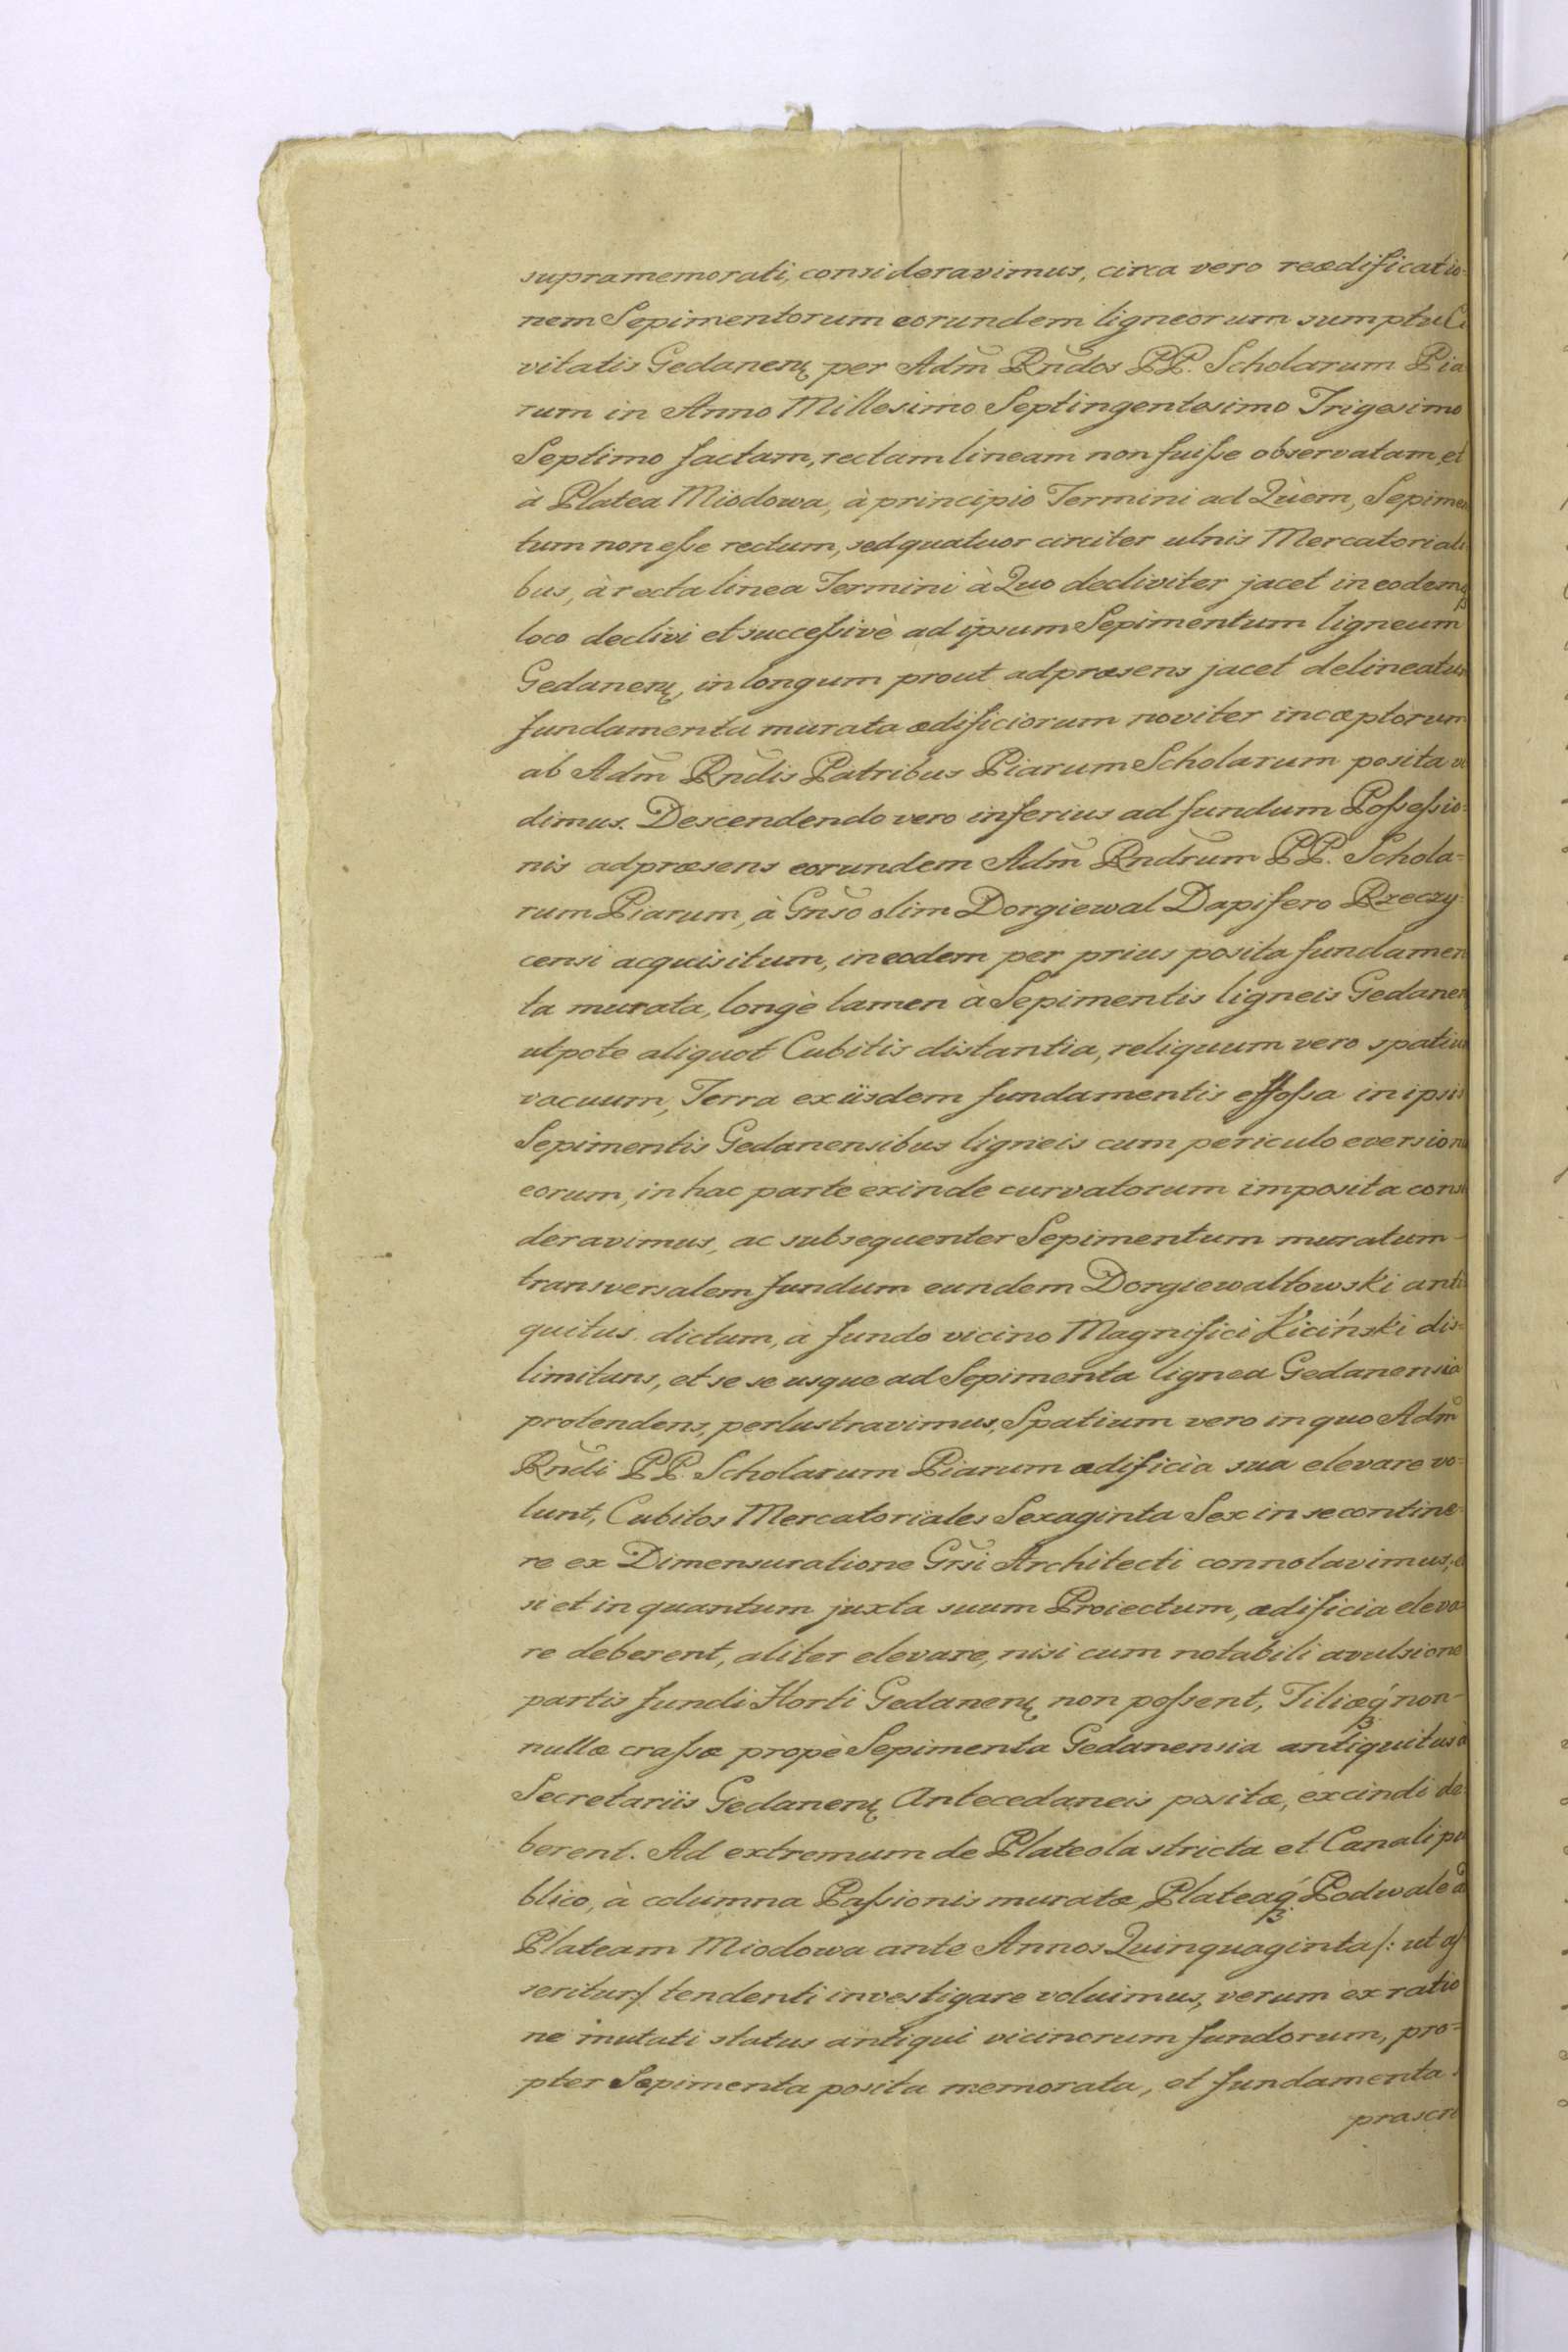 supramemorati, consideravimus, circa vero reædificatio-
nem Sepimentorum eorundem ligneorum sumptu Ci
vitatis Gedanenς per Adm̃ Rñdos PP. Scholarum Pia
rum in Anno Millesimo Septingentesimo Trigesimo
Septimo factam, rectam lineam non fuiſse observatam, et
à Platea Miodowa, à principio Termini ad Quem, Sepimen
tum non eſse rectum, sed quatuor circiter ulnis Mercatoriali
bus, à recta linea Termini à Quo decliviter jacet in eodemq
loco declivi et succeſsivè ad ipsum Sepimentum ligneum
Gedanenς, in longum prout ad præsens jacet delineatum
fundamenta murata ædificiorum noviter incæptorum
ab Adm̃ Rñdis Patribus Piarum Scholarum posita vi
dimus. Descendendo vero inferius ad fundum Poſseſsio-
nis ad præsens eorundem Adm̃ Rñdrum PP. Schola-
rum Piarum, à Gñso olim Dorgiewal Dapifero Rzeczy-
censi acquisitum, in eodem per prius posita fundamen
ta murata, longè tamen à Sepimentis ligneis Gedanen
utpote aliquot Cubitis distantia, reliquum vero spatium
vacuum, Terra ex iisdem fundamentis effoſsa in ipsis
Sepimentis Gedanensibus ligneis cum periculo eversionis
eorum, in hac parte exinde curvatorum imposita consi
deravimus, ac subsequenter Sepimentum muratum
transversalem fundum eundem Dorgiewałłowski anti
quitus dictum, à fundo vicino Magnifici Kiciński dis-
limitans, et se se usque ad Sepimenta lignea Gedanensia
protendens, perlustravimus, Spatium vero in quo Adm̃
Rñdi PP. Scholarum Piarum ædificia sua elevare vo-
lunt, Cubitos Mercatoriales Sexaginta Sex in se contine-
re ex Dimensuratione Gr̃si Architecti connotavimus, et
si et in quantum juxta suum Proiectum, ædificia eleva-
re deberent, aliter elevare, nisi cum notabili avulsione
partis fundi Horti Gedanenς non poſsent, Tiliæq́ non-
nullæ craſsæ propè Sepimenta Gedanensia antiquitus à
Secretariis Gedanenς Antecedaneis positæ, excindi de-
berent. Ad extremum de Plateola stricta et Canali pu
blico, à columna Paſsionis muratæ, Plateaq́ Podwale ad
Plateam Miodowa ante Annos Quinquaginta /: ut aſ
seritur:/ tendenti investigare voluimus, verum ex ratio
ne mutati status antiqui vicinorum fundorum, pro-
pter Sepimenta posita memorata, et fundamenta
præscri